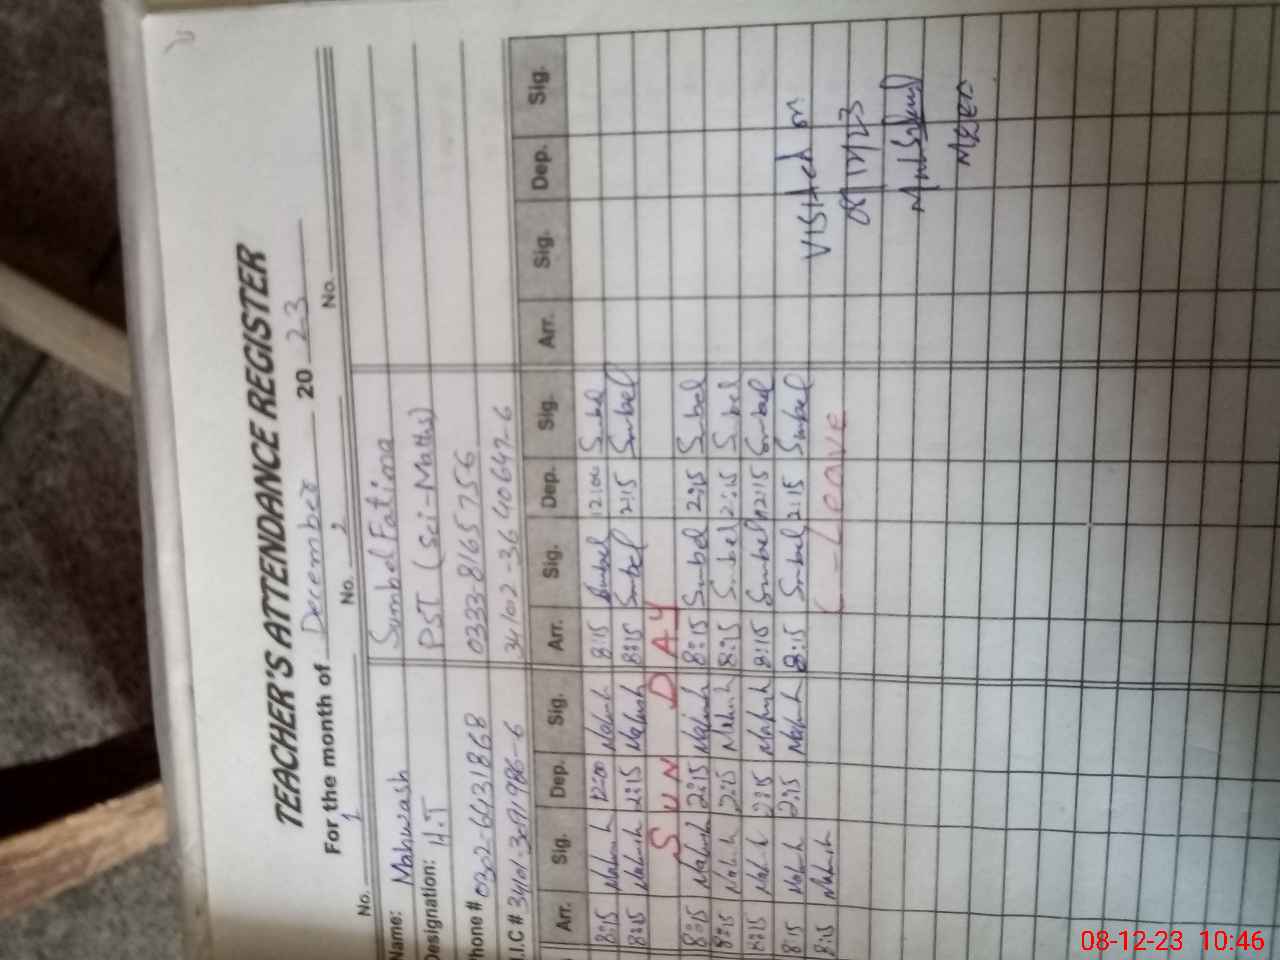 TEACHER'S ATTENDANCE REGISTER
For the month of December 20 23
No. 1 No. 2 No.
Name: Mahwash Sumbel Fatima
Designation: H.T PST (Sci-Maths)
Phone # 0302-6431868 0333-8165756
I.C #
Arr. Sig. Dep. Sig. Arr. Sig. Dep. Sig. Arr. Sig. Dep. Sig.
8:15 Mahwash 12:00 Mahwash 8:15 Sumbel 12:00 Sumbel
8:15 Mahwash 2:15 Mahwash 8:15 Sumbel 2:15 Sumbel
SUNDAY
8:15 Mahwash 2:15 Mahwash 8:15 Sumbel 2:15 Sumbel
8:15 Mahwash 2:15 Mahwash 8:15 Sumbel 2:15 Sumbel
8:15 Mahwash 2:15 Mahwash 8:15 Sumbel 2:15 Sumbel
8:15 Mahwash 2:15 Mahwash 8:15 Sumbel 2:15 Sumbel
8:15 Mahwash Leave
Visited on
08/12/23
08-12-23 10:46